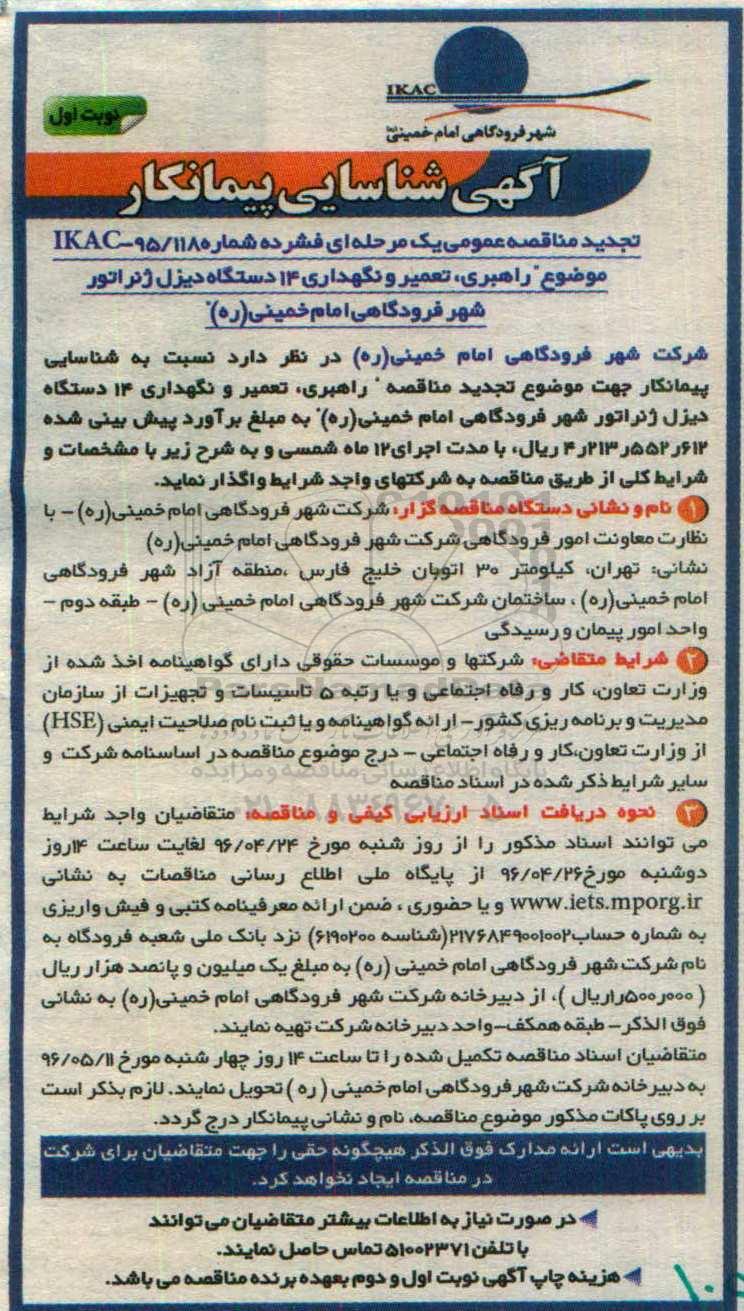 IKAC
شهر فرودگاهی امام خمینی
نوبت اول
آگهی شناسایی پیمانکار
تجدید مناقصه عمومی یک مرحله ای فشرده شماره IKAC-۹۵/۱۱۸
موضوع "راهبری، تعمیر و نگهداری ۱۴ دستگاه دیزل ژنراتور
شهر فرودگاهی امام خمینی(ره)"
شرکت شهر فرودگاهی امام خمینی(ره) در نظر دارد نسبت به شناسایی
پیمانکار جهت موضوع تجدید مناقصه " راهبری، تعمیر و نگهداری ۱۴ دستگاه
دیزل ژنراتور شهر فرودگاهی امام خمینی(ره)" به مبلغ برآورد پیش بینی شده
۴٫۲۱۳٫۵۵۲٫۶۱۲ ریال، با مدت اجرای۱۲ ماه شمسی و به شرح زیر با مشخصات و
شرایط کلی از طریق مناقصه به شرکتهای واجد شرایط واگذار نماید.
۱ نام و نشانی دستگاه مناقصه گزار: شرکت شهر فرودگاهی امام خمینی(ره) – با
نظارت معاونت امور فرودگاهی شرکت شهر فرودگاهی امام خمینی(ره)
نشانی: تهران، کیلومتر ۳۰ اتوبان خلیج فارس ،منطقه آزاد شهر فرودگاهی
امام خمینی(ره) ، ساختمان شرکت شهر فرودگاهی امام خمینی (ره) – طبقه دوم –
واحد امور پیمان و رسیدگی
۲ شرایط متقاضی: شرکتها و موسسات حقوقی دارای گواهینامه اخذ شده از
وزارت تعاون، کار و رفاه اجتماعی و یا رتبه ۵ تاسیسات و تجهیزات از سازمان
مدیریت و برنامه ریزی کشور – ارائه گواهینامه و یا ثبت نام صلاحیت ایمنی (HSE)
از وزارت تعاون،کار و رفاه اجتماعی – درج موضوع مناقصه در اساسنامه شرکت و
سایر شرایط ذکر شده در اسناد مناقصه
۳ نحوه دریافت اسناد ارزیابی کیفی و مناقصه: متقاضیان واجد شرایط
می توانند اسناد مذکور را از روز شنبه مورخ ۹۶/۰۴/۲۴ لغایت ساعت ۱۴روز
دوشنبه مورخ۹۶/۰۴/۲۶ از پایگاه ملی اطلاع رسانی مناقصات به نشانی
www.iets.mporg.ir و یا حضوری ، ضمن ارائه معرفینامه کتبی و فیش واریزی
به شماره حساب۲۱۷۶۸۴۹۰۰۱۰۰۲(شناسه ۶۱۹۰۲۰۰) نزد بانک ملی شعبه فرودگاه به
نام شرکت شهر فرودگاهی امام خمینی (ره) به مبلغ یک میلیون و پانصد هزار ریال
( ۱٫۵۰۰٫۰۰۰ریال )، از دبیرخانه شرکت شهر فرودگاهی امام خمینی(ره) به نشانی
فوق الذکر – طبقه همکف-واحد دبیرخانه شرکت تهیه نمایند.
متقاضیان اسناد مناقصه تکمیل شده را تا ساعت ۱۴ روز چهار شنبه مورخ ۹۶/۰۵/۱۱
به دبیرخانه شرکت شهر فرودگاهی امام خمینی ( ره ) تحویل نمایند. لازم بذکر است
بر روی پاکات مذکور موضوع مناقصه، نام و نشانی پیمانکار درج گردد.
بدیهی است ارائه مدارک فوق الذکر هیچگونه حقی را جهت متقاضیان برای شرکت
در مناقصه ایجاد نخواهد کرد.
در صورت نیاز به اطلاعات بیشتر متقاضیان می توانند
با تلفن ۵۱۰۰۲۳۷۱ تماس حاصل نمایند.
هزینه چاپ آگهی نوبت اول و دوم بعهده برنده مناقصه می باشد.